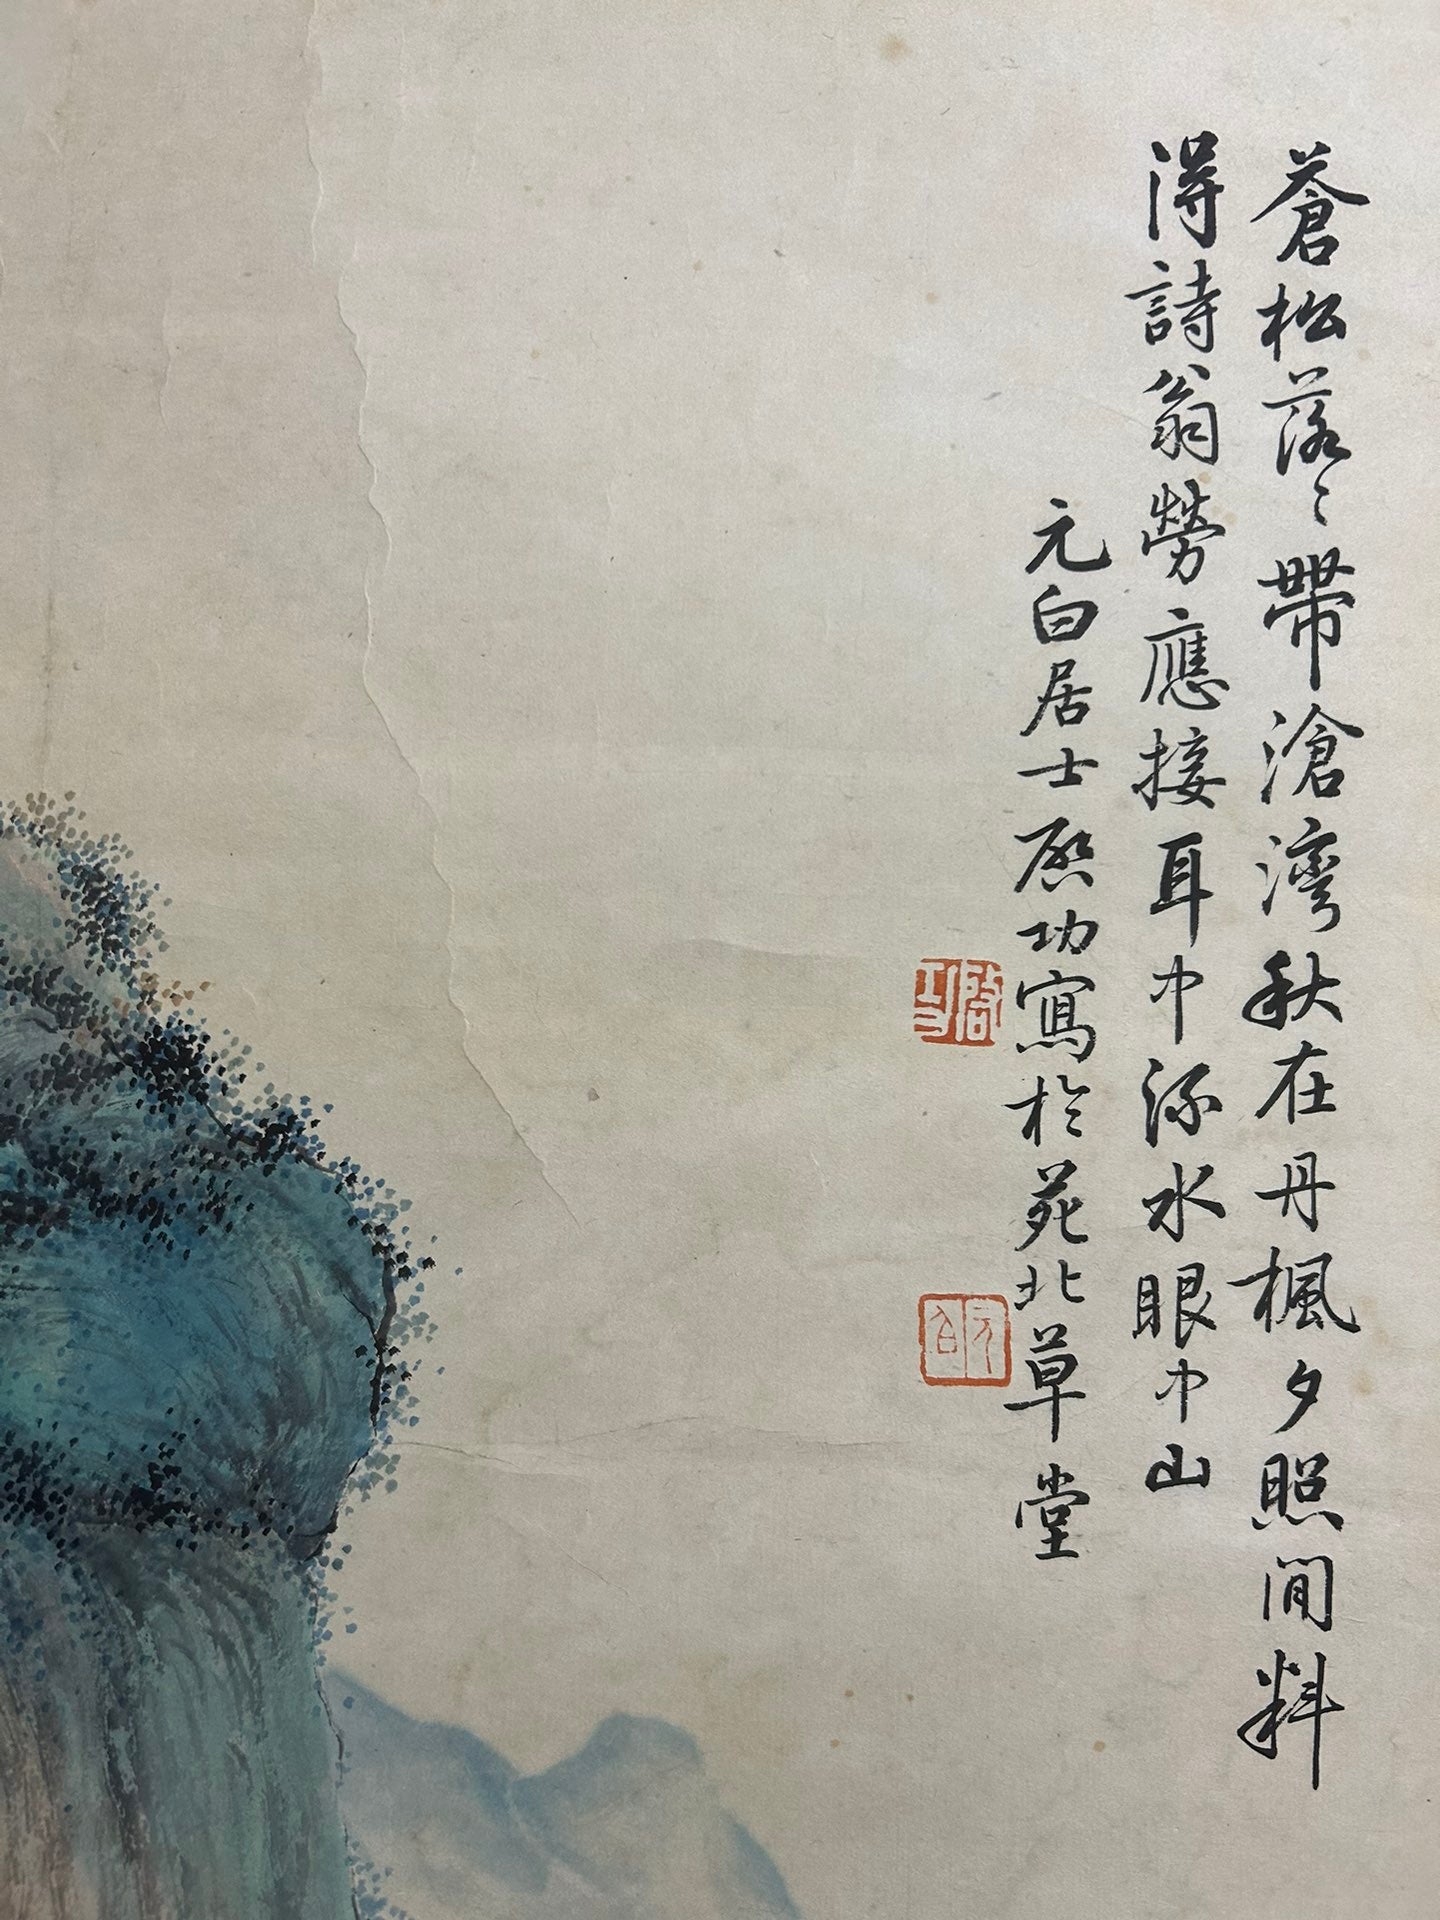 蒼松落〻帶滄灣秋在丹楓夕照間料
得詩翁勞應接耳中流水眼中山
元白居士啟功寫於苑北草堂
啟功
元白